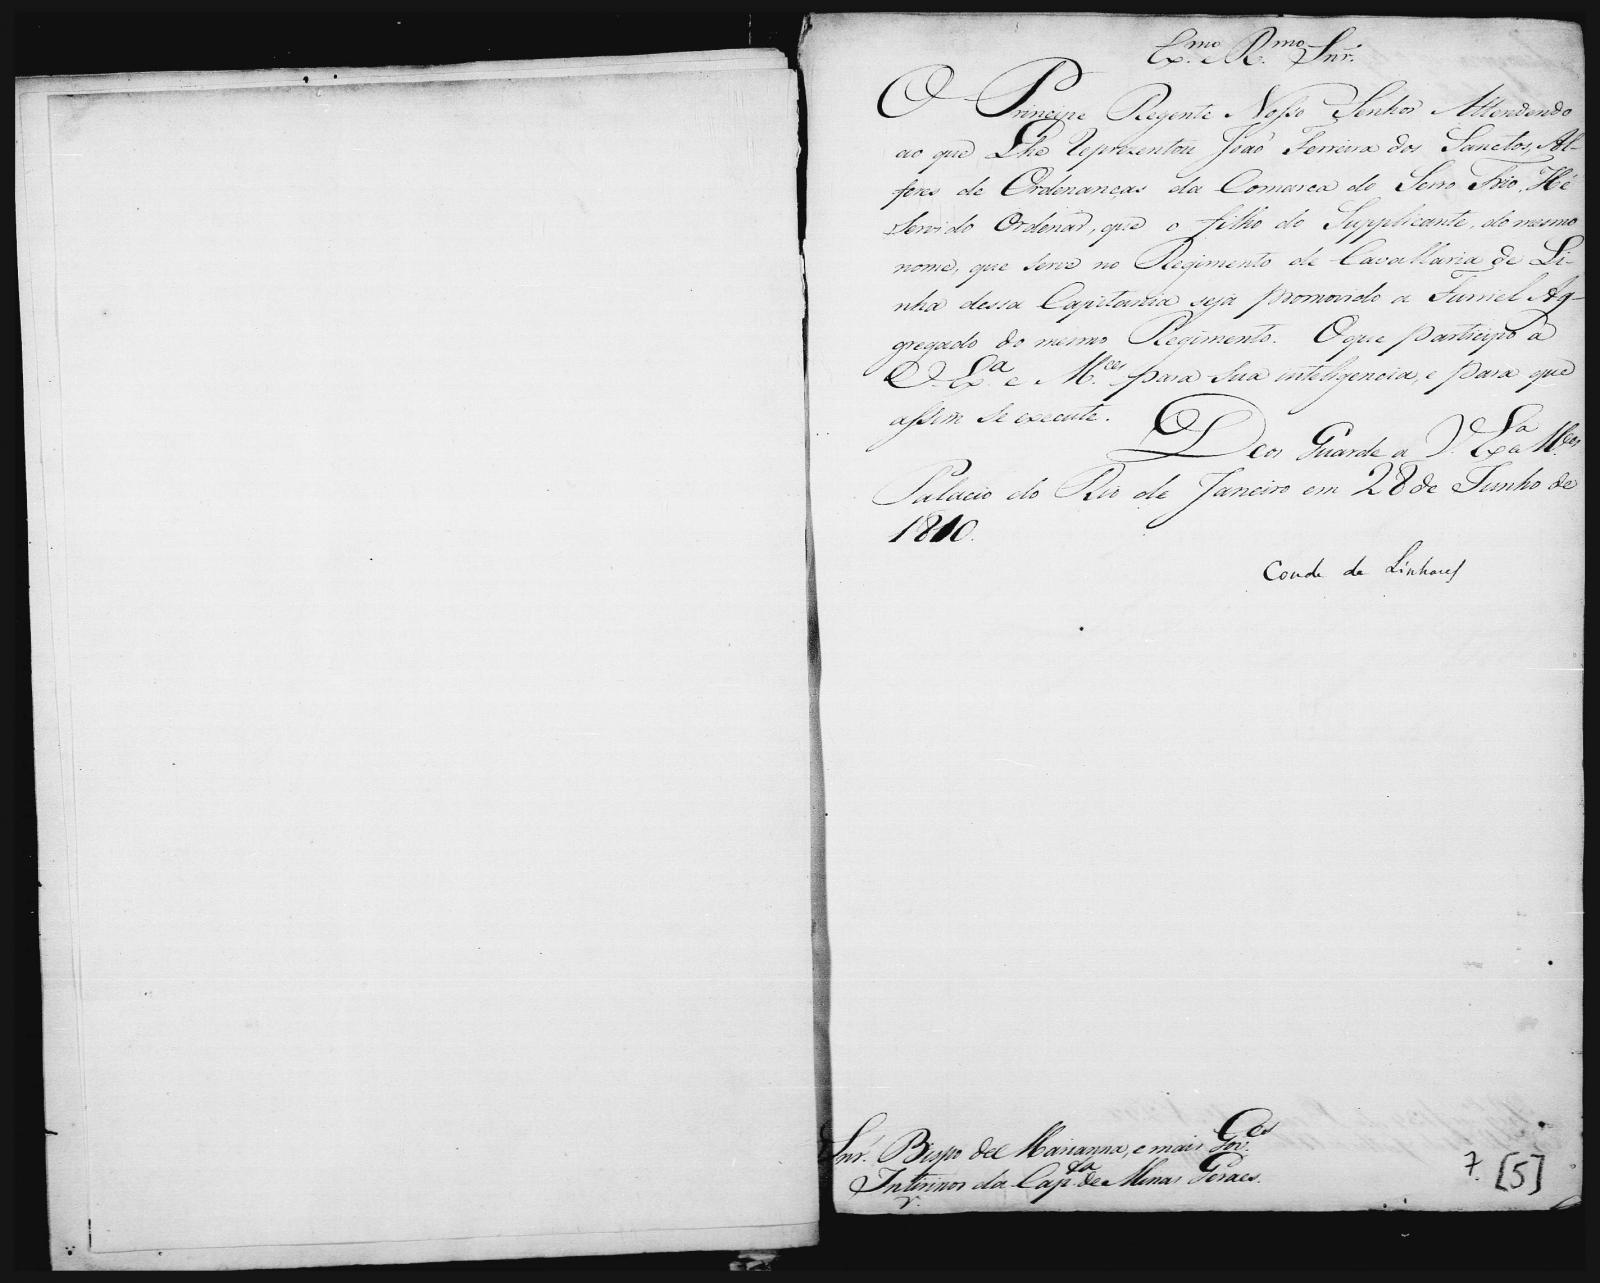 Ex.mo R.mo Snr.
O Principe Regente Nosso Senhor Attendendo
ao que Lhe Reprezentou João Ferreira dos Sanctos, Al-
feres de Ordenanças da Comarca do Serro Frio, Hé
Servido Ordenar, que o filho do Supplicante, do mesmo
nome, que serve no Regimento de Cavallaria de Li-
nha dessa Capitania seja promovido a Furriel Ag-
gregado do mesmo Regimento. O que participo a
V. Ex.a e M.ces para sua inteligencia, e para que
assim se execute.
Deos Guarde a V. Ex.a e M.ces
Palacio do Rio de Janeiro em 28 de Junho de
1810.
Conde de Linhares
Snr. Bispo de Marianna, e mais Gov.es
Interinos da Cap.nia de Minas Geraes.
7.
[5]